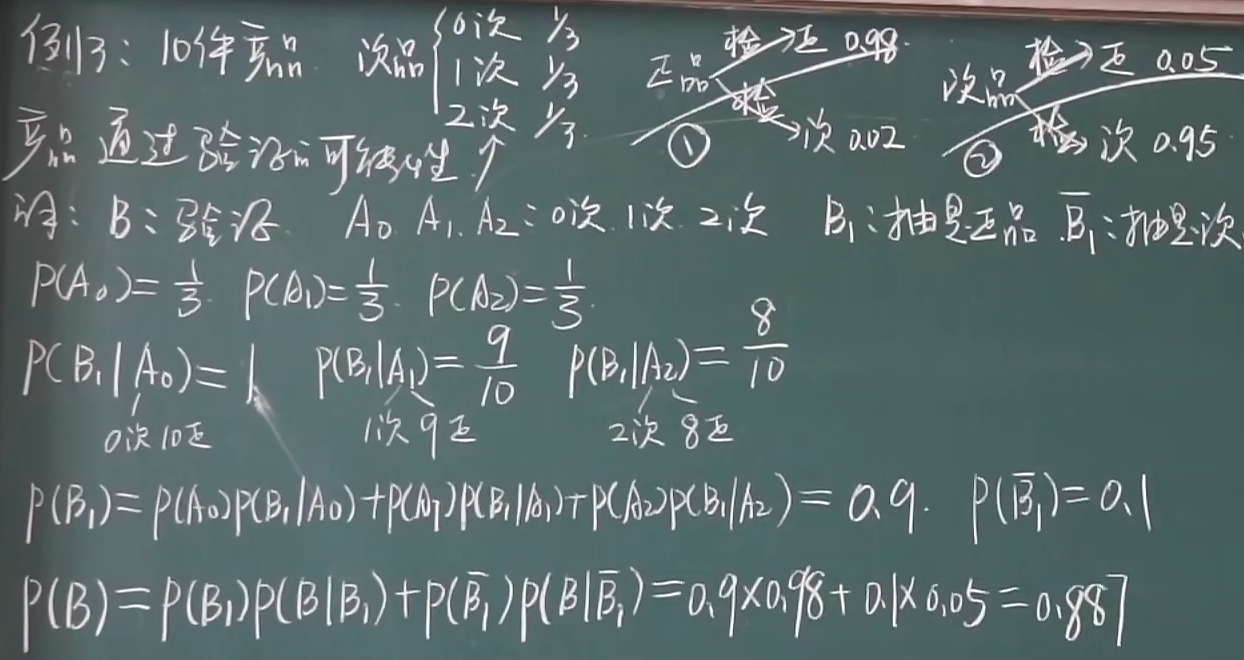 例3：10件产品 次品{0次 1/3
1次 1/3
2次 1/3
正品 检→正 0.98
检→次 0.02
①
次品 检→正 0.05
检→次 0.95
②
产品通过验收的可能性↑
设：B：验收 A₀ A₁ A₂：0次 1次 2次 B₁：抽是正品 B̄₁：抽是次
P(A₀)=1/3. P(A₁)=1/3. P(A₂)=1/3.
P(B₁|A₀)=1 P(B₁|A₁)=9/10 P(B₁|A₂)=8/10
0次10正 1次9正 2次8正
P(B₁)=P(A₀)P(B₁|A₀)+P(A₁)P(B₁|A₁)+P(A₂)P(B₁|A₂)=0.9. P(B̄₁)=0.1
P(B)=P(B₁)P(B|B₁)+P(B̄₁)P(B|B̄₁)=0.9×0.98+0.1×0.05=0.887